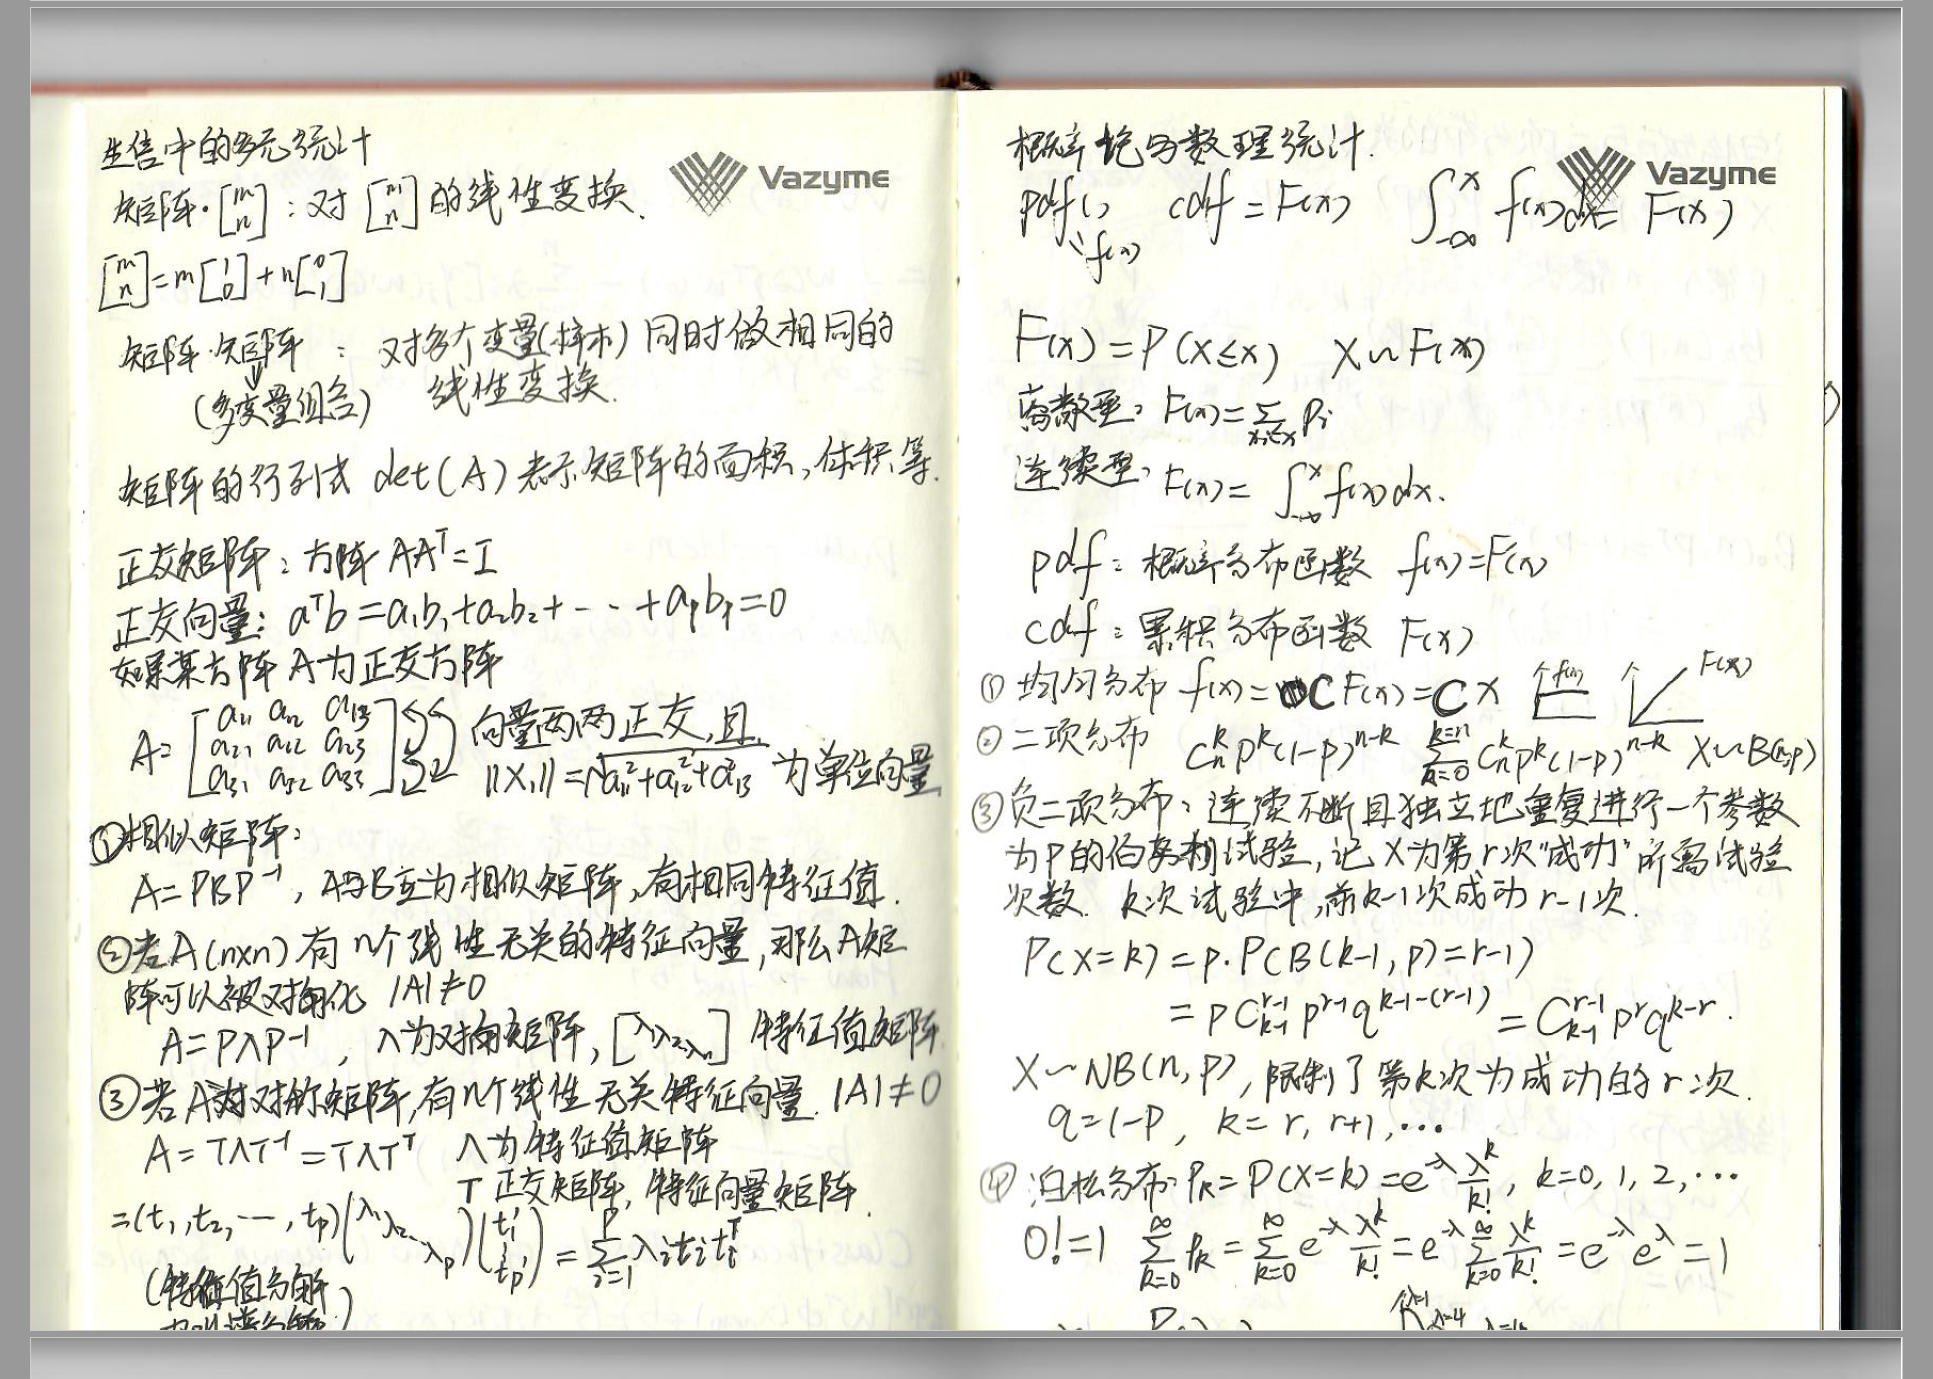 生信中的多元统计
Vazyme
矩阵·[m n]：对[m n]的线性变换.
[m n]=m[1 0]+n[0 1]
矩阵·矩阵：对多个变量(样本)同时做相同的
(多变量组合) 线性变换.
矩阵的行列式 det(A)表示矩阵的面积,体积等.
正交矩阵：方阵 AAᵀ=I
正交向量：aᵀb=a₁b₁+a₂b₂+----+aₚbₚ=0
如果某方阵A为正交方阵
A=[a₁₁ a₁₂ a₁₃
a₂₁ a₂₂ a₂₃
a₃₁ a₃₂ a₃₃] 向量两两正交,且
||X₁||=√a₁₁²+a₁₂²+a₁₃² 为单位向量
①相似矩阵：
A=PBP⁻¹, A与B互为相似矩阵,有相同特征值.
②若A(n×n)有n个线性无关的特征向量,那么A矩
阵可以被对角化 |A|≠0
A=PλP⁻¹, λ为对角矩阵,[λ₁λ₂..λₙ]特征值矩阵.
③若A为对称矩阵,有n个线性无关特征向量.|A|≠0
A=TΛT⁻¹=TΛTᵀ Λ为特征值矩阵
T 正交矩阵,特征向量矩阵.
=(t₁,t₂,---,tₚ)(λ₁λ₂...λₚ)(t₁'⋮tₚ')=Σᵢ₌₁ᵖλᵢtᵢtᵢᵀ
(特征值分解
概率论与数理统计.
Vazyme
pdf() cdf=F(x) ∫₋∞ˣf(x)dx=F(x)
f(x)
F(x)=P(X≤x) X~F(x)
离散型：F(x)=Σ_{xᵢ≤x}pᵢ
连续型：F(x)=∫₋∞ˣf(x)dx.
pdf：概率分布函数 f(x)=F'(x)
cdf：累积分布函数 F(x)
①均匀分布 f(x)=C F(x)=Cx f(x) F(x)
②二项分布 Cₙᵏpᵏ(1-p)ⁿ⁻ᵏ Σₖ₌₀ᵏ⁼ⁿCₙᵏpᵏ(1-p)ⁿ⁻ᵏ X~B(n,p)
③负二项分布：连续不断且独立地重复进行一个参数
为P的伯努利试验,记X为第r次"成功"所需试验
次数. k次试验中,前k-1次成功r-1次.
P(X=k)=p·P(B(k-1,p)=r-1)
=pCₖ₋₁ʳ⁻¹pʳ⁻¹qᵏ⁻¹⁻⁽ʳ⁻¹⁾=Cₖ₋₁ʳ⁻¹pʳqᵏ⁻ʳ.
X~NB(n,p),限制了第k次为成功的r次.
q=1-p, k=r,r+1,...
④泊松分布：Pₖ=P(X=k)=e^{-λ}λᵏ/k!, k=0,1,2,...
0!=1 Σₖ₌₀^∞Pₖ=Σₖ₌₀^∞e^{-λ}λᵏ/k!=e^{-λ}Σₖ₌₀^∞λᵏ/k!=e^{-λ}e^λ=1
λ=1
λ=4